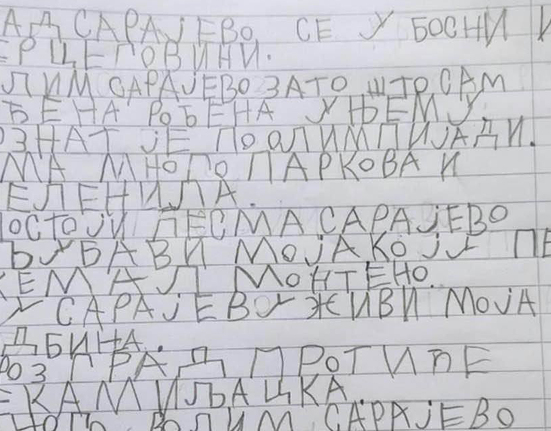 АД САРАЈЕВО СЕ У БОСНИ И
ЕРЦЕГОВИНИ.
ЛИМ САРАЈЕВО ЗАТО ШТО САМ
ЂЕНА РОЂЕНА У ЊЕМУ.
ОЗНАТ ЈЕ ПО ОЛИМПИЈАДИ.
МА МНОГО ПАРКОВА И
ЕЛЕНИЛА.
ПОСТОЈИ ПЕСМА САРАЈЕВО
ЉУБАВИ МОЈА КОЈУ ПЕ
КЕМАЛ МОНТЕНО.
У САРАЈЕВУ ЖИВИ МОЈА
ДБИНА.
РОЗ ГРАД ПРОТИЧЕ
ЕКА МИЉАЦКА.
НОГО ВОЛИМ САРАЈЕВО